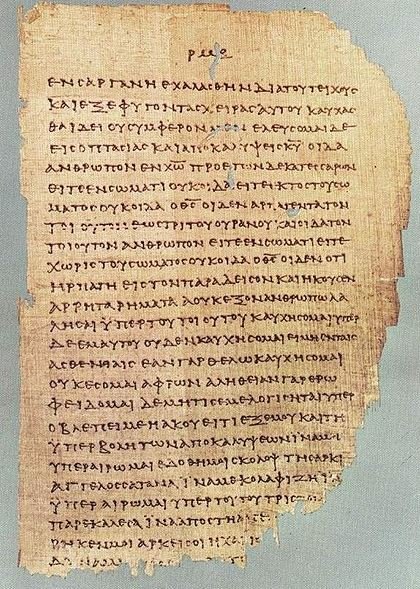 ΡΜΘ
ΕΝϹΑΡΓΑΝΗΕΧΑΛΑϹΘΗΝΔΙΑΤΟΥΤΕΙΧΟΥϹ
ΚΑΙΕΞΕΦΥΓΟΝΤΑϹΧΕΙΡΑϹΑΥΤΟΥΚΑΥΧΑϹ
ΘΑΙΔΕΙΟΥϹΥΜΦΕΡΟΝΜΕΝΕΛΕΥϹΟΜΑΙΔΕ
ΕΙϹΟΠΤΑϹΙΑϹΚΑΙΑΠΟΚΑΛΥΨΕΙϹΚ̅Υ̅ΟΙΔΑ
ΑΝΘΡΩΠΟΝΕΝΧ̅Ω̅ΠΡΟΕΤΩΝΔΕΚΑΤΕϹϹΑΡΩΝ
ΕΙΤΕΕΝϹΩΜΑΤΙΟΥΚΟΙΔΑΕΙΤΕΕΚΤΟϹΤΟΥϹΩ
ΜΑΤΟϹΟΥΚΟΙΔΑΟΘ̅Ϲ̅ΟΙΔΕΝΑΡΠΑΓΕΝΤΑΤΟΝ
ΤΟΙΟΥΤΟΝΕΩϹΤΡΙΤΟΥΟΥΡΑΝΟΥΚΑΙΟΙΔΑΤΟΝ
ΤΟΙΟΥΤΟΝΑΝΘΡΩΠΟΝΕΙΤΕΕΝϹΩΜΑΤΙΕΙΤΕ
ΧΩΡΙϹΤΟΥϹΩΜΑΤΟϹΟΥΚΟΙΔΑΟΘ̅Ϲ̅ΟΙΔΕΝΟΤΙ
ΗΡΠΑΓΗΕΙϹΤΟΝΠΑΡΑΔΕΙϹΟΝΚΑΙΗΚΟΥϹΕΝ
ΑΡΡΗΤΑΡΗΜΑΤΑΑΟΥΚΕΞΟΝΑΝΘΡΩΠΩΛΑ
ΛΗϹΑΙΫΠΕΡΤΟΥΤΟΙΟΥΤΟΥΚΑΥΧΗϹΟΜΑΙΫΠΕΡ
ΔΕΕΜΑΥΤΟΥΟΥΔΕΝΚΑΥΧΗϹΟΜΑΙΕΙΜΗΕΝΤΑΙϹ
ΑϹΘΕΝΕΙΑΙϹΕΑΝΓΑΡΘΕΛΩΚΑΥΧΗϹΟΜΑΙ
ΟΥΚΕϹΟΜΑΙΑΦΡΩΝΑΛΗΘΕΙΑΝΓΑΡΕΡΩ
ΦΕΙΔΟΜΑΙΔΕΜΗΤΙϹΕΜΕΛΟΓΙϹΗΤΑΙΫΠΕΡ
ΟΒΛΕΠΕΙΜΕΗΑΚΟΥΕΙΤΙΕΞΕΜΟΥΚΑΙΤΗ
ΫΠΕΡΒΟΛΗΤΩΝΑΠΟΚΑΛΥΨΕΩΝΙΝΑΜΗ
ΥΠΕΡΑΙΡΩΜΑΙΕΔΟΘΗΜΟΙϹΚΟΛΟΨΤΗϹΑΡΚΙ
ΑΓΓΕΛΟϹϹΑΤΑΝΑΪΝΑΜΕΚΟΛΑΦΙΖΗΪΝΑ
ΫΠΕΡΑΙΡΩΜΑΙΥΠΕΡΤΟΥΤΟΥΤΡΙϹ
ΠΑΡΕΚΑΛΕϹΑΪΝΑΑΠΟϹΤΗ
ΡΗΚΕΝΜΟΙΑΡΚΕΙϹΟΙΗΧΑΡΙϹ